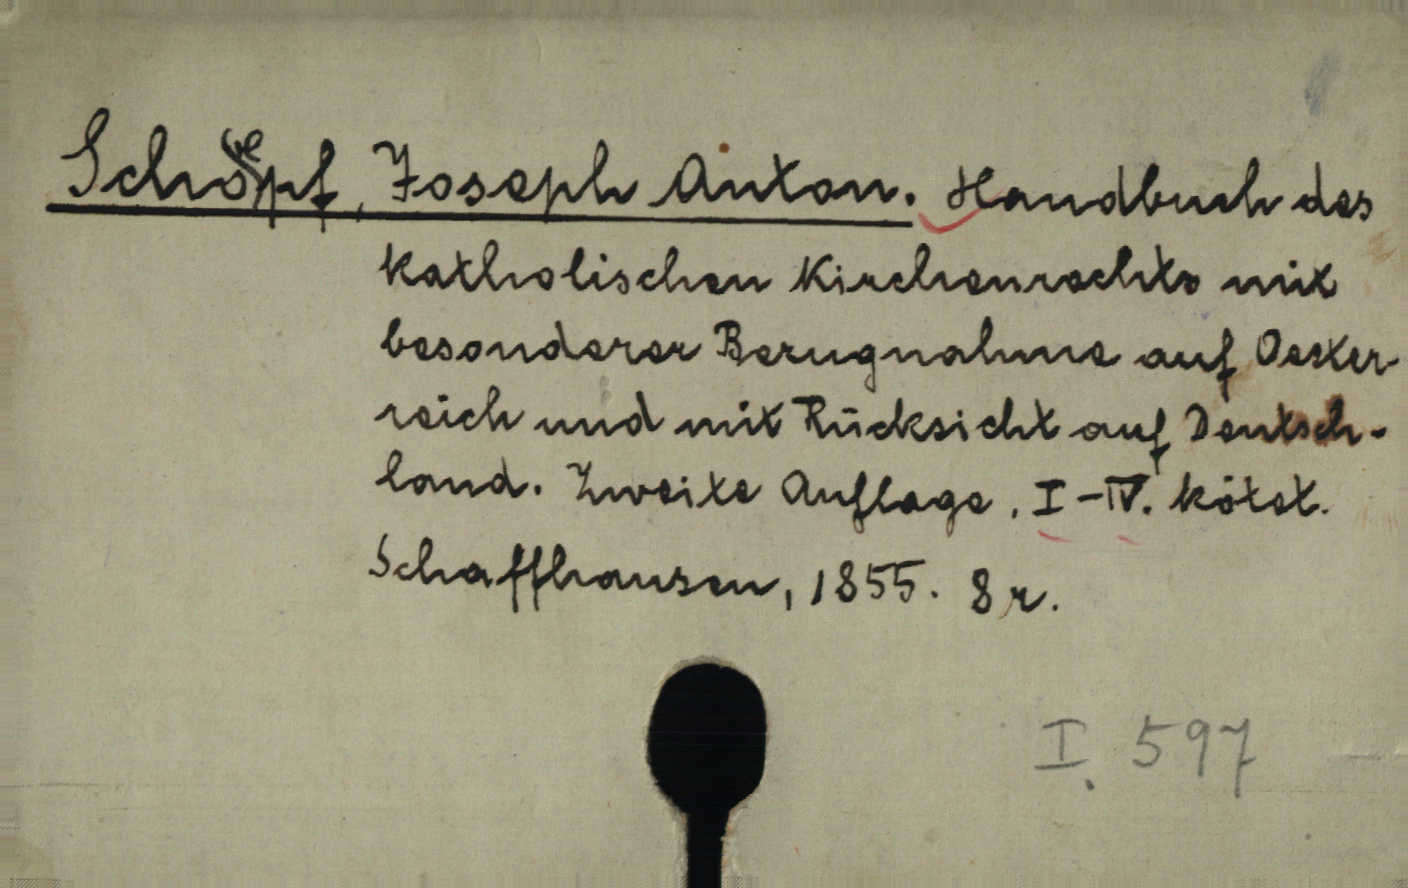 Schöpf, Joseph Anton. Handbuch des
katholischen Kirchenrechts mit
besonderer Bezugnahme auf Oester-
reich und mit Rücksicht auf Deutsch-
land. Zweite Auflage. I-IV. kötet.
Schaffhausen, 1855. 8 r.
I. 597